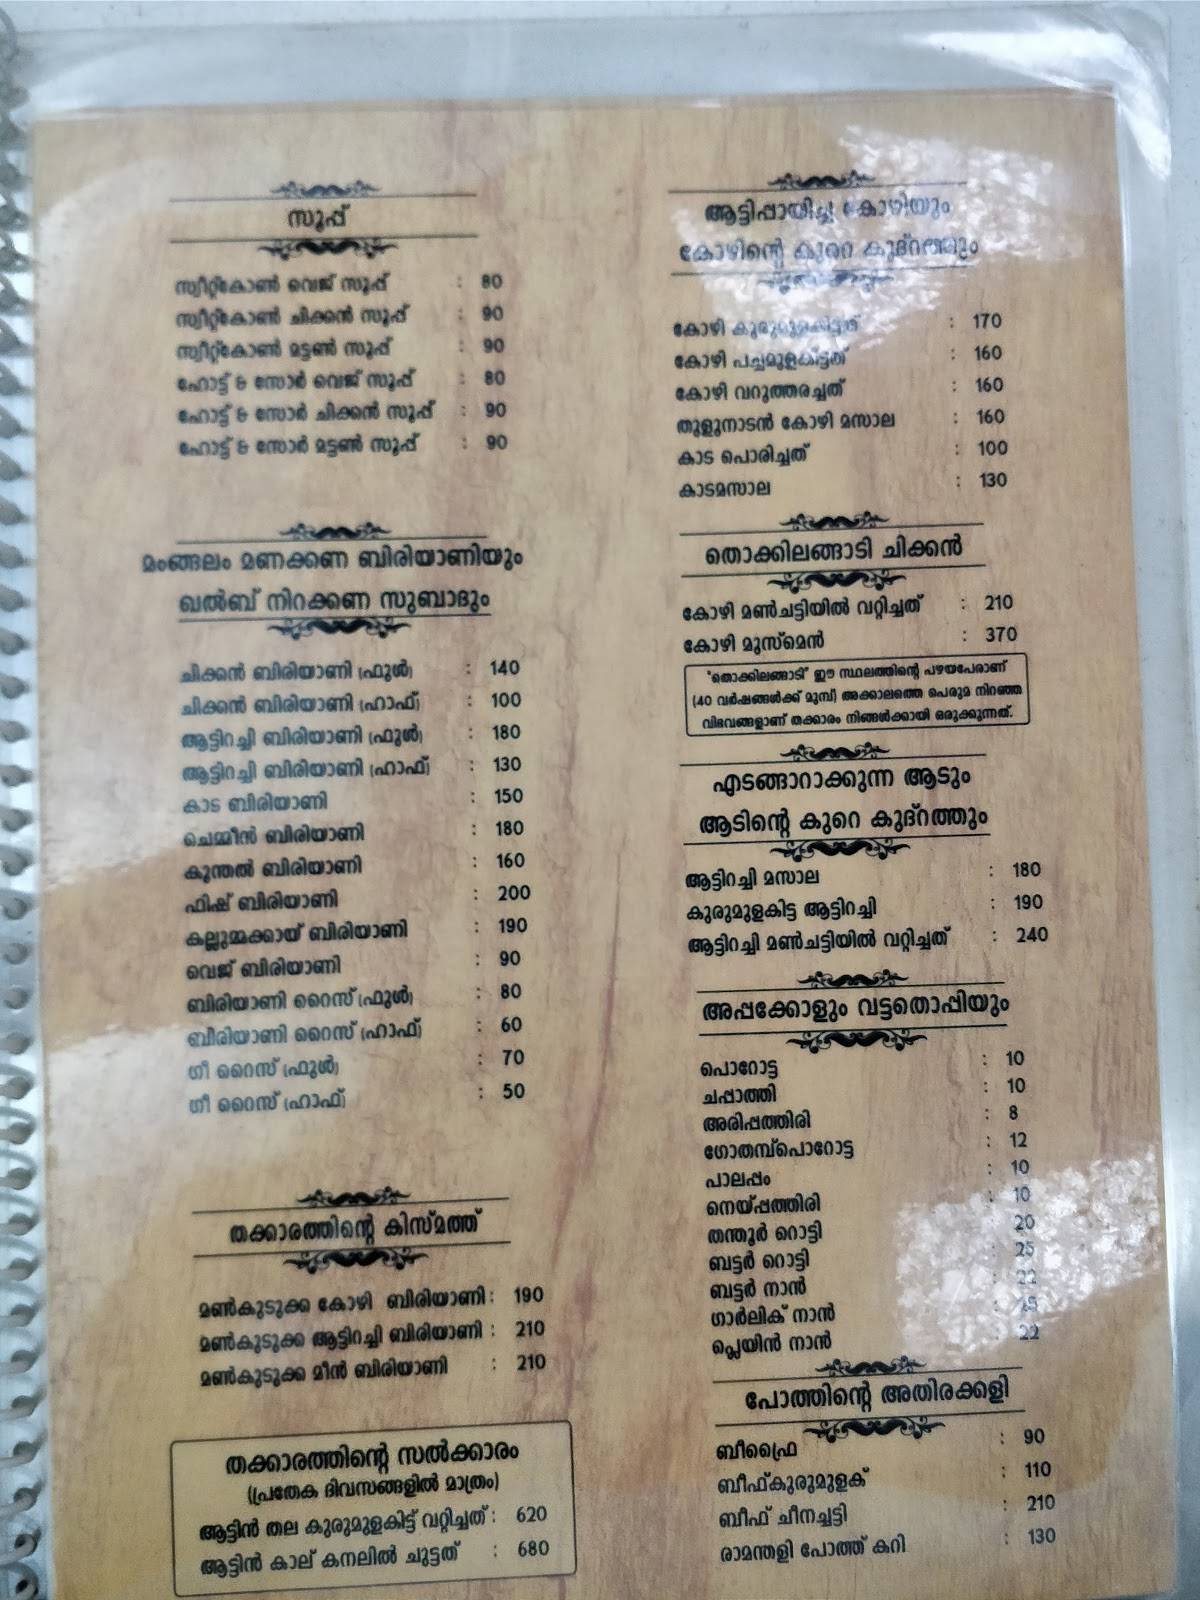 സൂപ്പ്
സ്വീറ്റ്കോൺ വെജ് സൂപ്പ് : 80
സ്വീറ്റ്കോൺ ചിക്കൻ സൂപ്പ് : 90
സ്വീറ്റ്കോൺ മട്ടൺ സൂപ്പ് : 90
ഹോട്ട് & സോർ വെജ് സൂപ്പ് : 80
ഹോട്ട് & സോർ ചിക്കൻ സൂപ്പ് : 90
ഹോട്ട് & സോർ മട്ടൺ സൂപ്പ് : 90
മംങ്ങലം മണക്കണ ബിരിയാണിയും
ഖൽബ് നിറക്കണ സുബാദും
ചിക്കൻ ബിരിയാണി (ഫുൾ) : 140
ചിക്കൻ ബിരിയാണി (ഹാഫ്) : 100
ആട്ടിറച്ചി ബിരിയാണി (ഫുൾ) : 180
ആട്ടിറച്ചി ബിരിയാണി (ഹാഫ്) : 130
കാട ബിരിയാണി : 150
ചെമ്മീൻ ബിരിയാണി : 180
കൂന്തൽ ബിരിയാണി : 160
ഫിഷ് ബിരിയാണി : 200
കല്ലുമ്മക്കായ് ബിരിയാണി : 190
വെജ് ബിരിയാണി : 90
ബിരിയാണി റൈസ് (ഫുൾ) : 80
ബിരിയാണി റൈസ് (ഹാഫ്) : 60
ഗീ റൈസ് (ഫുൾ) : 70
ഗീ റൈസ് (ഹാഫ്) : 50
തക്കാരത്തിന്റെ കിസ്മത്ത്
മൺകുടുക്ക കോഴി ബിരിയാണി : 190
മൺകുടുക്ക ആട്ടിറച്ചി ബിരിയാണി : 210
മൺകുടുക്ക മീൻ ബിരിയാണി : 210
തക്കാരത്തിന്റെ സൽക്കാരം
(പ്രത്യേക ദിവസങ്ങളിൽ മാത്രം)
ആട്ടിൻ തല കുരുമുളകിട്ട് വറ്റിച്ചത് : 620
ആട്ടിൻ കാല് കനലിൽ ചുട്ടത് : 680
ആട്ടിപ്പായിച്ച കോഴിയും
കോഴിന്റെ കുറെ കുദ്റത്തും
കോഴി കുരുമുളകിട്ടത് : 170
കോഴി പച്ചമുളകിട്ടത് : 160
കോഴി വറുത്തരച്ചത് : 160
തുളുനാടൻ കോഴി മസാല : 160
കാട പൊരിച്ചത് : 100
കാടമസാല : 130
തൊക്കിലങ്ങാടി ചിക്കൻ
കോഴി മൺചട്ടിയിൽ വറ്റിച്ചത് : 210
കോഴി മുസ്മെൻ : 370
"തൊക്കിലങ്ങാടി" ഈ സ്ഥലത്തിന്റെ പഴയപേരാണ്
(40 വർഷങ്ങൾക്ക് മുമ്പ്) അക്കാലത്തെ പെരുമ നിറഞ്ഞ
വിഭവങ്ങളാണ് തക്കാരം നിങ്ങൾക്കായി ഒരുക്കുന്നത്.
എടങ്ങാറാക്കുന്ന ആടും
ആടിന്റെ കുറെ കുദ്റത്തും
ആട്ടിറച്ചി മസാല : 180
കുരുമുളകിട്ട ആട്ടിറച്ചി : 190
ആട്ടിറച്ചി മൺചട്ടിയിൽ വറ്റിച്ചത് : 240
അപ്പക്കോളും വട്ടതൊപ്പിയും
പൊറോട്ട : 10
ചപ്പാത്തി : 10
അരിപ്പത്തിരി : 8
ഗോതമ്പ്പൊറോട്ട : 12
പാലപ്പം : 10
നെയ്പ്പത്തിരി : 10
തന്തൂർ റൊട്ടി 20
ബട്ടർ റൊട്ടി : 25
ബട്ടർ നാൻ : 22
ഗാർലിക് നാൻ :
പ്ലെയിൻ നാൻ : 22
പോത്തിന്റെ അതിരക്കളി
ബീഫ്രൈ : 90
ബീഫ്കുരുമുളക് : 110
ബീഫ് ചീനച്ചട്ടി : 210
രാമന്തളി പോത്ത് കറി : 130